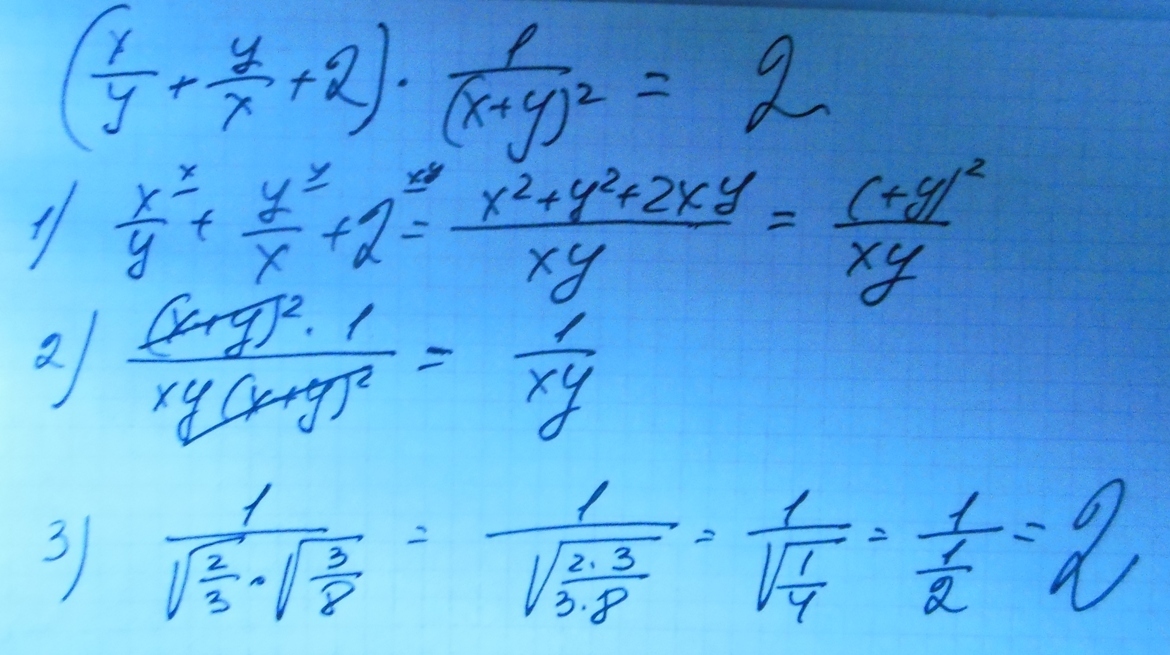 (x/y + y/x + 2) · 1/(x+y)² = 2
1) x/y ˣ + y/x ʸ + 2 ˣʸ = (x²+y²+2xy)/(xy) = (+y)²/(xy)
2) ((x+y)² · 1)/(xy(x+y)²) = 1/(xy)
3) 1/(√(2/3) · √(3/8)) = 1/√((2·3)/(3·8)) = 1/√(1/4) = 1/(1/2) = 2